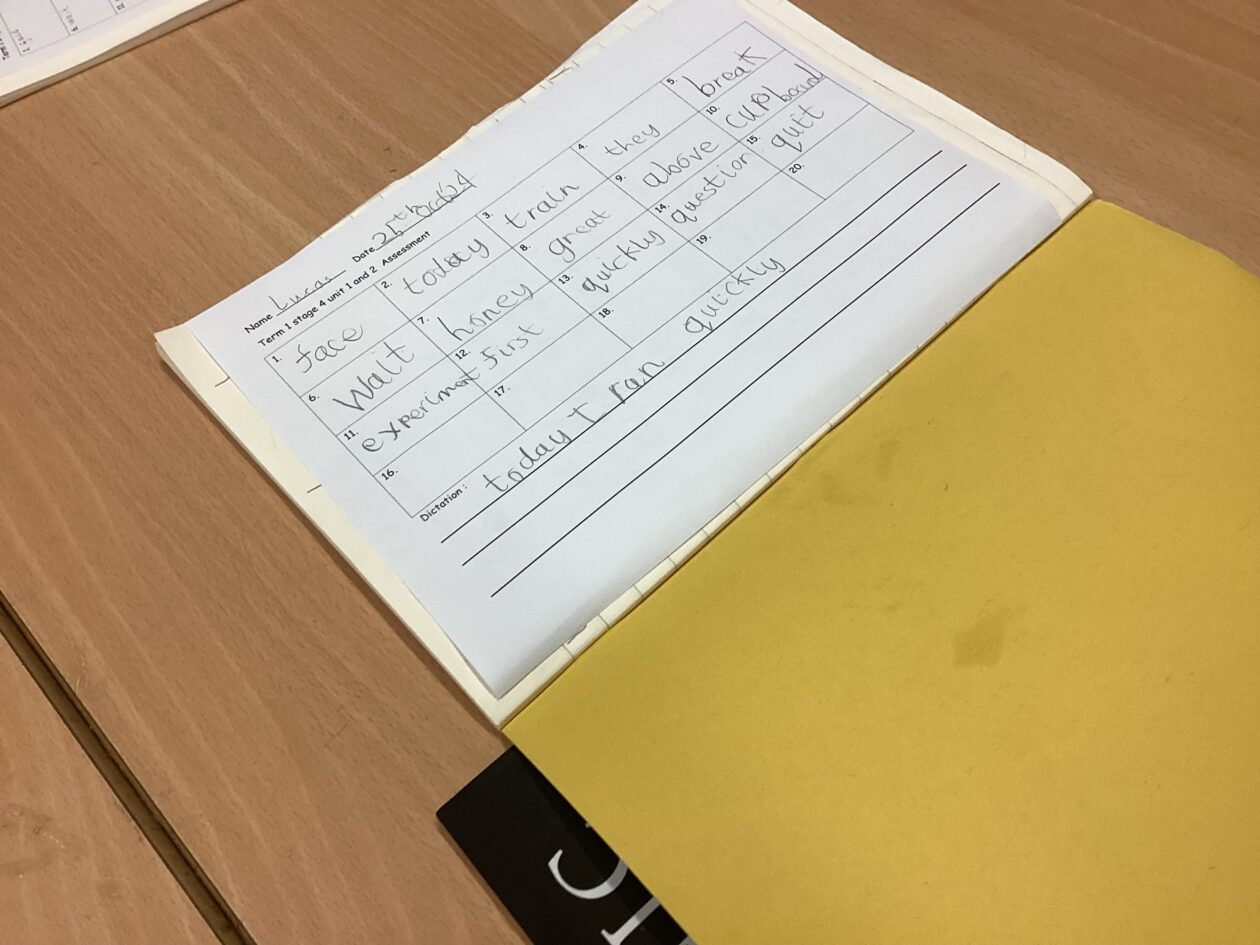 Name Lucas Date 25th Oct'24
Term 1 stage 4 unit 1 and 2 Assessment
1. face 2. today 3. train 4. they 5. break
6. Wait 7. honey 8. great 9. above 10. cupboard
11. experiment 12. first 13. quickly 14. question 15. quit
16. 17. 18. 19. 20.
Dictation: today I ran quickly